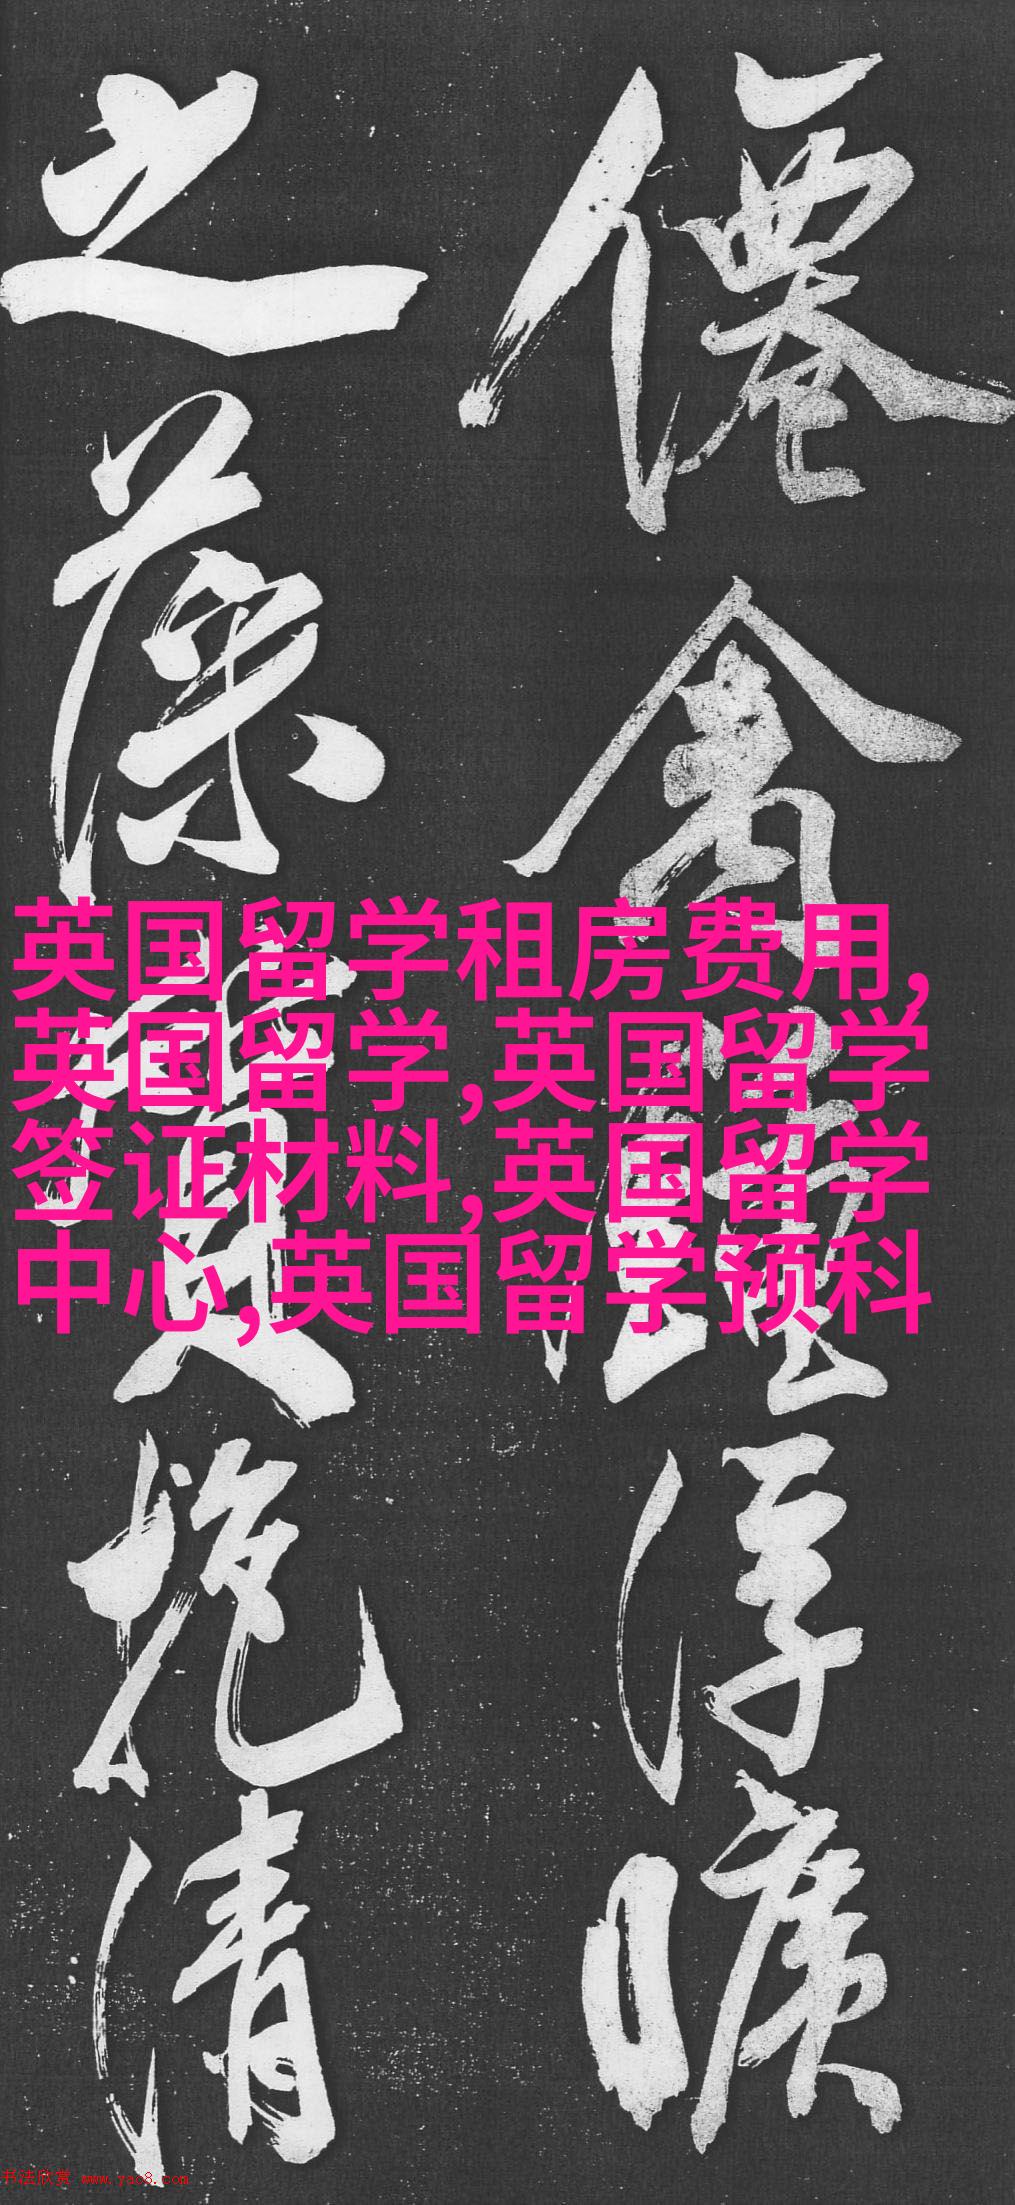 僊禽鍾浮曠
之藻質抱清
英国留学租房费用,
英国留学,英国留学
签证材料,英国留学
中心,英国留学预科
书法欣赏 www.yac8.com